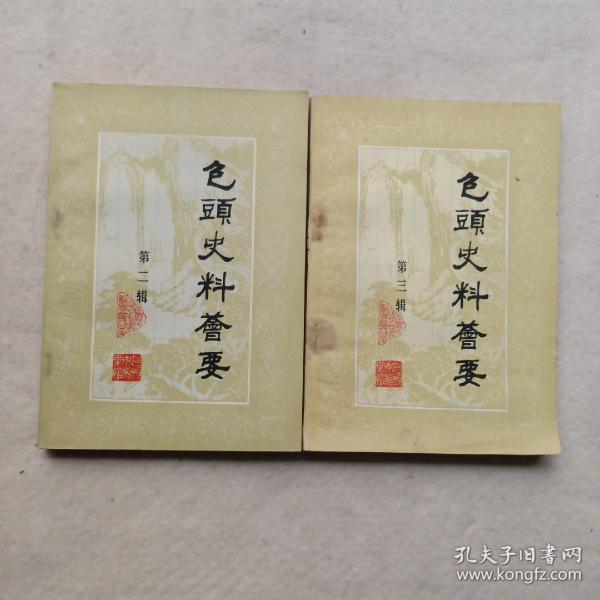 包頭史料薈要
第二辑
包頭史料薈要
第三辑
孔夫子旧书网
www.kongfz.com